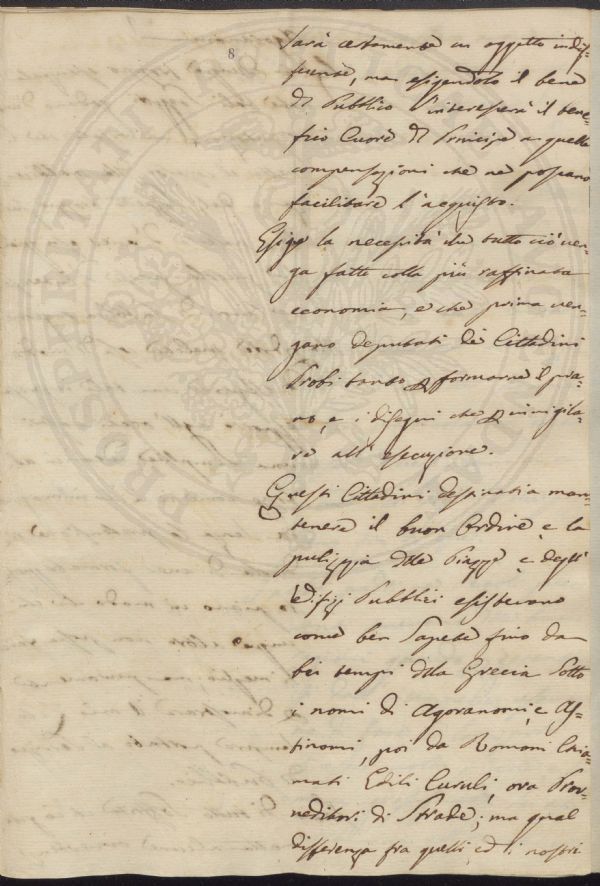 8
sarà certamente un oggetto indif-
ferente, ma esigendolo il bene
di Pubblico interesserà il bene-
fico Cuore di Principe a quelle
compensazioni che ne possano
facilitare l'acquisto.
Esige la necessità che tutto ciò ven-
ga fatto colla più raffinata
economia, e che prima ven-
gano deputati dei Cittadini
Probi tanto p formarne il pia-
no, e i disegni che p invigila-
re all' esecuzione.
Questi Cittadini destinati a man-
tenere il buon Ordine e la
pulizzia dlle Piazze e degli
edifizj Pubblici esistevano
come ben Sapete fino da
bei tempi dlla Grecia Sotto
i nomi di Agoranomi, e As-
tinomi, poi da Romani Chia-
mati Edili Curuli, ora Prov-
veditori di Strade; ma qual
differenza fra quelli ed i nostri